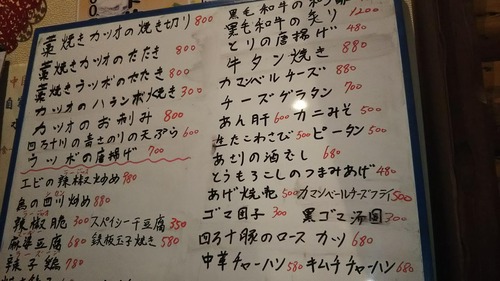 藁焼きカツオの焼き切り 800
藁焼きカツオのたたき 800
藁焼きウツボのたたき 800
カツオのハランボ焼き 300
カツオのお刺み 800
四万十川の青さのりの天ぷら 600
ウツボの唐揚げ 700
エビの辣椒炒め 980
鳥の四川炒め 880
辣椒脆 300 スパイシー干豆腐 350
麻婆豆腐 680 鉄板玉子焼き 580
辣子鶏 780
黒毛和牛の
黒毛和牛の炙り 1200
とりの唐揚げ 480
牛タン焼き 880
カマンベルチーズ 880
チーズグラタン 700
あん肝 600 カニみそ 500
生たこわさび 500 ピータン 500
あさりの酒むし 680
とうもろこしのつまみあげ 480
あげ焼売 500 カマンベールチーズフライ 500
ゴマ団子 300 黒ゴマ湯圓 300
四万十豚のロースカツ 680
中華チャーハン 580 キムチチャーハン 680